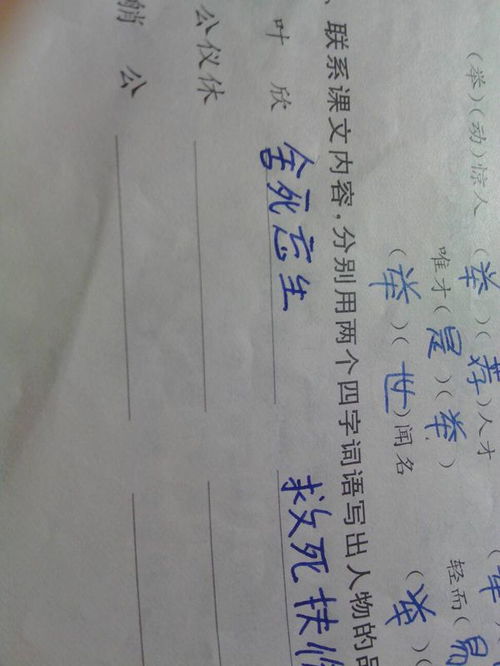 (举)(动)惊人 (举)(荐)人才 (举
唯才(是)(举) 轻而(易
(举)(世)闻名 (举)(
、联系课文内容,分别用两个四字词语写出人物的品
叶 欣 舍死忘生 救死扶
公仪休
艄 公